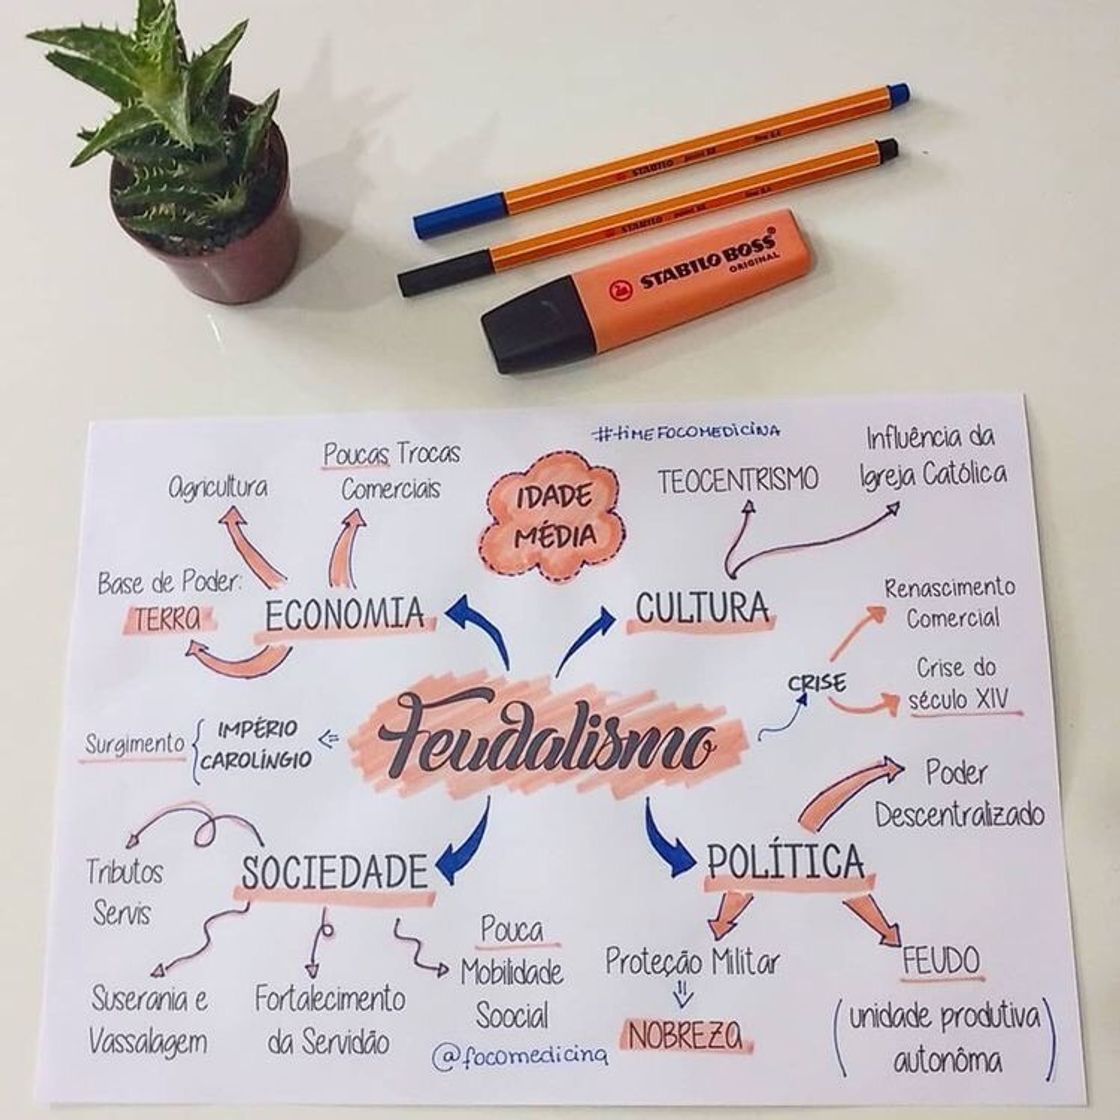 STABILO point 88 fine 0,4
STABILO point 88 fine 0,4
STABILO BOSS®
ORIGINAL
#tiMEFOCOMEDICINA
IDADE
MÉDIA
Poucas Trocas
Comerciais
Agricultura
Base de Poder:
TERRA
ECONOMIA
TEOCENTRISMO
Influência da
Igreja Católica
CULTURA
Renascimento
Comercial
CRISE
Crise do
século XIV
Feudalismo
Surgimento { IMPÉRIO
CAROLÍNGIO
Poder
Descentralizado
SOCIEDADE
Tributos
Servis
Suserania e
Vassalagem
Fortalecimento
da Servidão
Pouca
Mobilidade
Soocial
@focomedicina
POLÍTICA
Proteção Militar
⇓
NOBREZA
FEUDO
(unidade produtiva
autonôma)